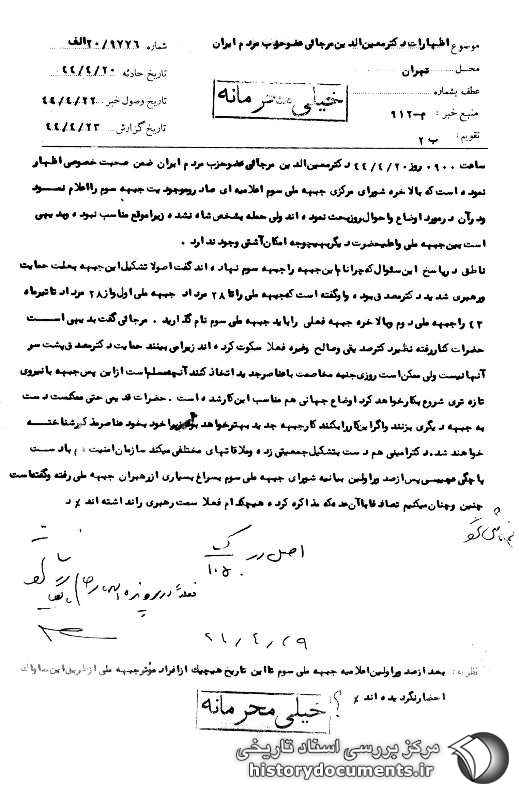 موضوع اظهارات دکتر معین الدین مرجائی عضو حزب مردم ایران
شماره ۲۰/۹۷۷۶الف
محل تهران
تاریخ حادثه ۴۴/۴/۲۰
عطف بشماره
خیلی محرمانه
تاریخ وصول خبر ۴۴/۴/۲۲
منبع خبر : م-۹۱۲
تاریخ گزارش ۴۴/۴/۲۳
تقویم : ب ۲
ساعت ۰۹۰۰ روز ۴۴/۴/۲۰ دکتر معین الدین مرجائی عضو حزب مردم ایران ضمن صحبت خصوصی اظهار
نموده است که بالاخره شورای مرکزی جبهه ملی سوم اعلامیه ای صادر و موجودیت جبهه سوم را اعلام نمود
و در آن در مورد اوضاع و احوال روز بحث نموده اند ولی حمله بشخص شاه نشده زیرا موقع مناسب نبوده و بدیهی
است بین جبهه ملی و اعلیحضرت دیگر بهیچوجه امکان آشتی وجود ندارد .
ناطق در پاسخ این سئوال که چرا نام این جبهه را جبهه سوم نهاده اند گفت اصولا تشکیل این جبهه بعلت حمایت
و رهبری شدید دکتر مصدق بوده و او گفته است که جبهه ملی را تا ۲۸ مرداد جبهه ملی اول و از ۲۸ مرداد تا تیرماه
۴۲ را جبهه ملی دوم و بالاخره جبهه فعلی را باید جبهه ملی سوم نام گذارید . مرجائی گفت بدیهی است
حضرات کنار رفته نظیر دکتر صدیقی و صالح وغیره فعلا سکوت کرده اند زیرا می بینند حمایت دکتر مصدق پشت سر
آنها نیست ولی ممکن است روزی جنبه مخاصمت با عناصر جدید اتخاذ کنند آنچه مسلم است از این پس جبهه با نیروی
تازه تری شروع بکار خواهد کرد اوضاع جهانی هم مناسب این کار شده است . حضرات قدیمی حتی ممکنست دست
به جبهه دیگری بزنند و اگر این کار را بکنند کار جبهه جدید بهتر خواهد بود زیرا خود بخود عناصر مذکور شناخته
خواهند شد . دکتر امینی هم دست بتشکیل جمعیتی زده و ملاقاتهای مختلفی میکند سازمان امنیت هم با دست
پاچگی عجیبی پس از صدور اولین بیانیه شورای جبهه ملی سوم بسراغ بسیاری از رهبران جبهه ملی رفته و گفته است
چنین و چنان میکنیم تصادفا با آن عده که مذاکره کرده هیچکدام فعلا سمت رهبری را نداشته اند ٪ د
اصل در ک
۱۰۵
۲۹/۴/۴۴
نظریه : بعد از صدور اولین اعلامیه جبهه ملی سوم تا این تاریخ هیچیک از افراد موثر جبهه ملی از طریق این ساواک
احضار نگردیده اند ٪ ؟
خیلی محرمانه
مرکز بررسی اسناد تاریخی
historydocuments.ir